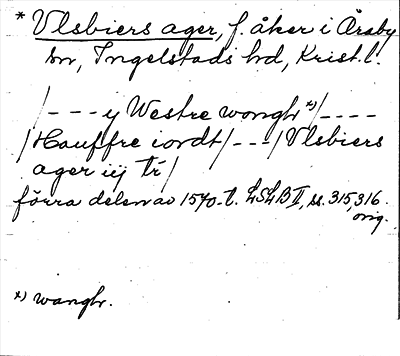 * Vlsbiers ager, f. åker i Åraby
by, Ingelstads hd, Krist. l.
/- - - y Westre wonghr *)/- - - -
/Hauffre iordt/- - -/Vlsbiers
ager iij tr/
förra delen av 1540-t. LSLB II, ss. 315, 316.
orig.
*) wanghr.